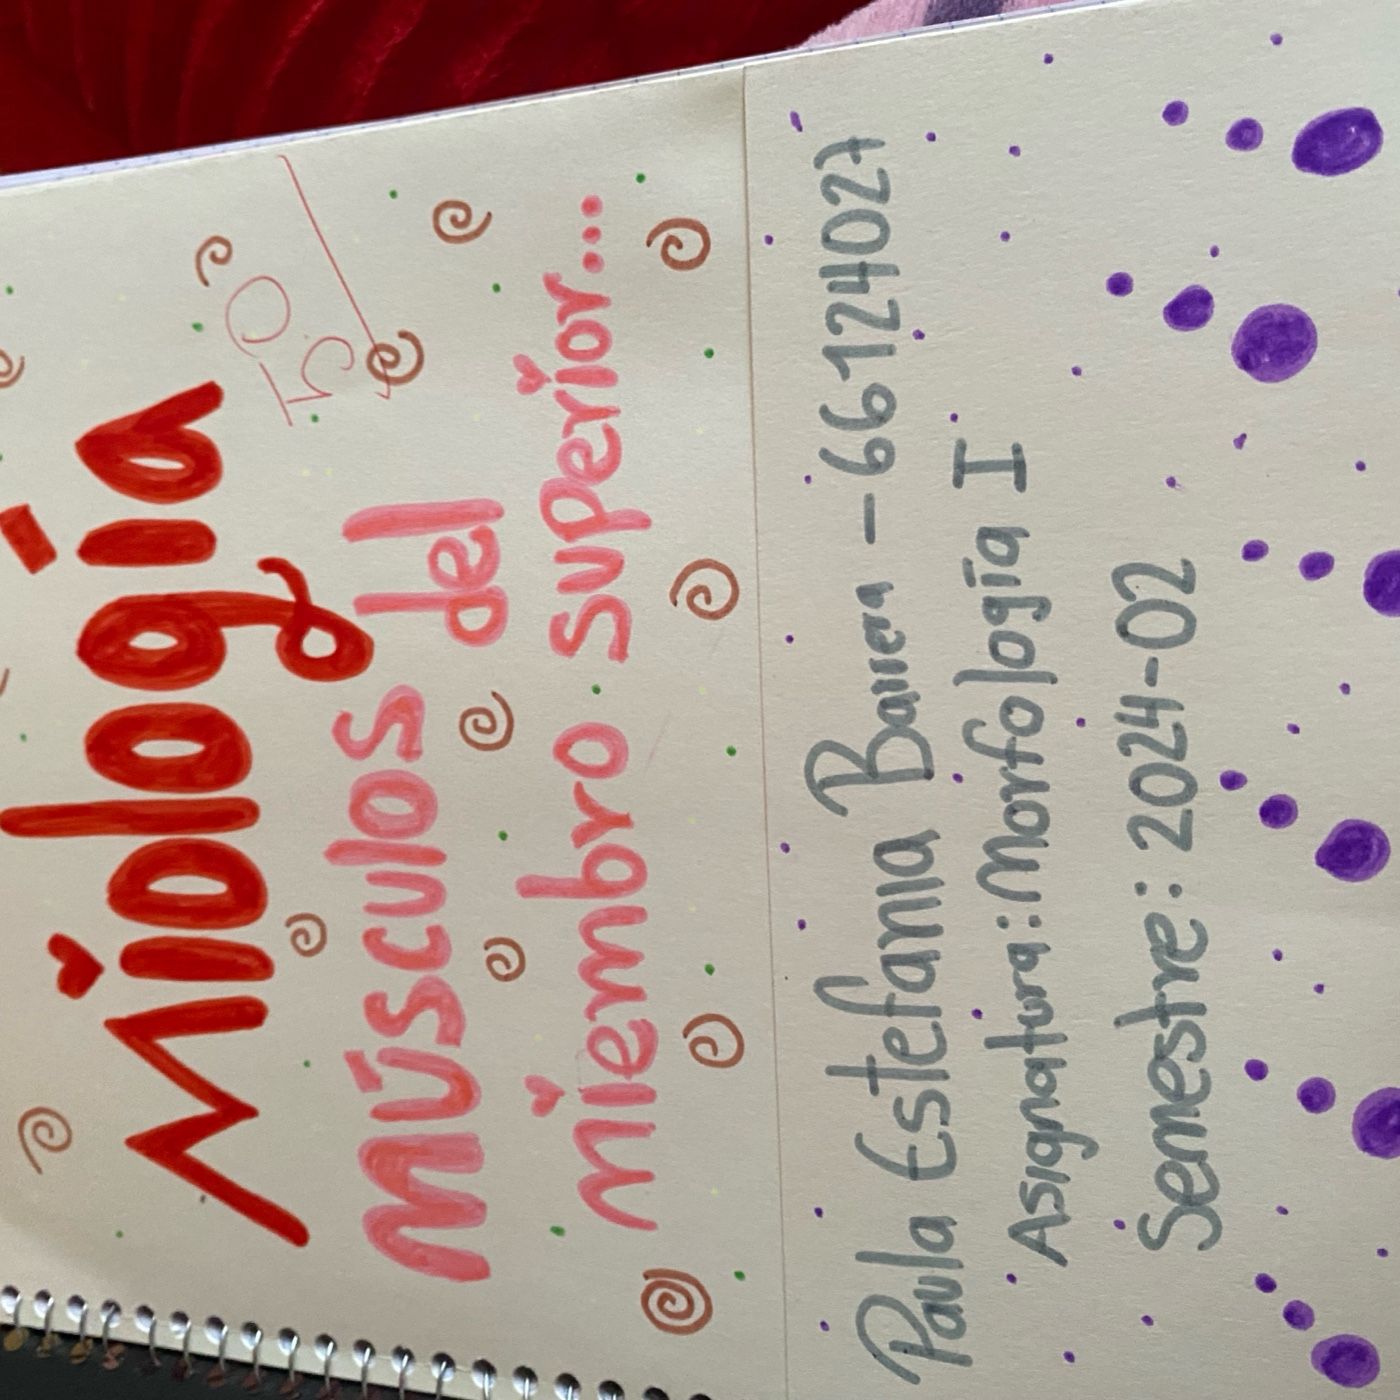 Miología
Músculos del
miembro superior...
5.0
Paula Estefania Barrera - 66124027
Asignatura: Morfología I
Semestre: 2024-02